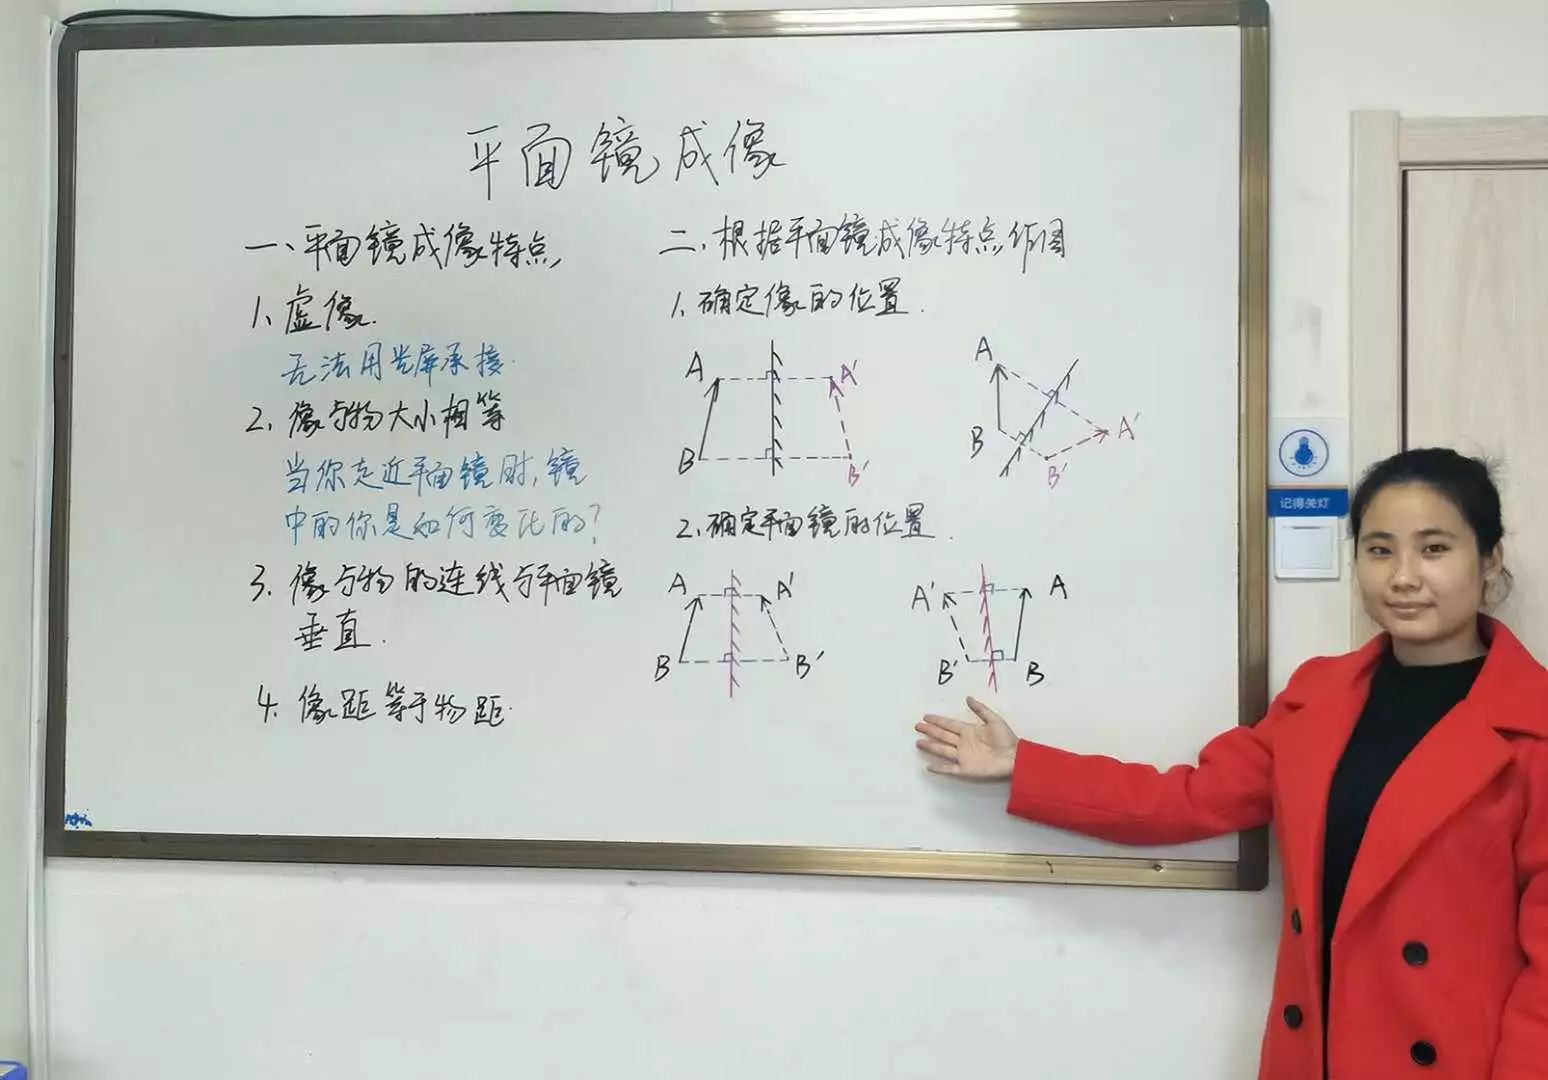 平面镜成像
一、平面镜成像特点
1、虚像.
无法用光屏承接.
2、像与物大小相等
当你走近平面镜时,镜
中的你是如何变化的?
3、像与物的连线与平面镜
垂直.
4、像距等于物距.
二、根据平面镜成像特点作图
1、确定像的位置.
A A'
B B'
A
B A'
B'
2、确定平面镜的位置.
A A'
B B'
A' A
B' B
记得关灯